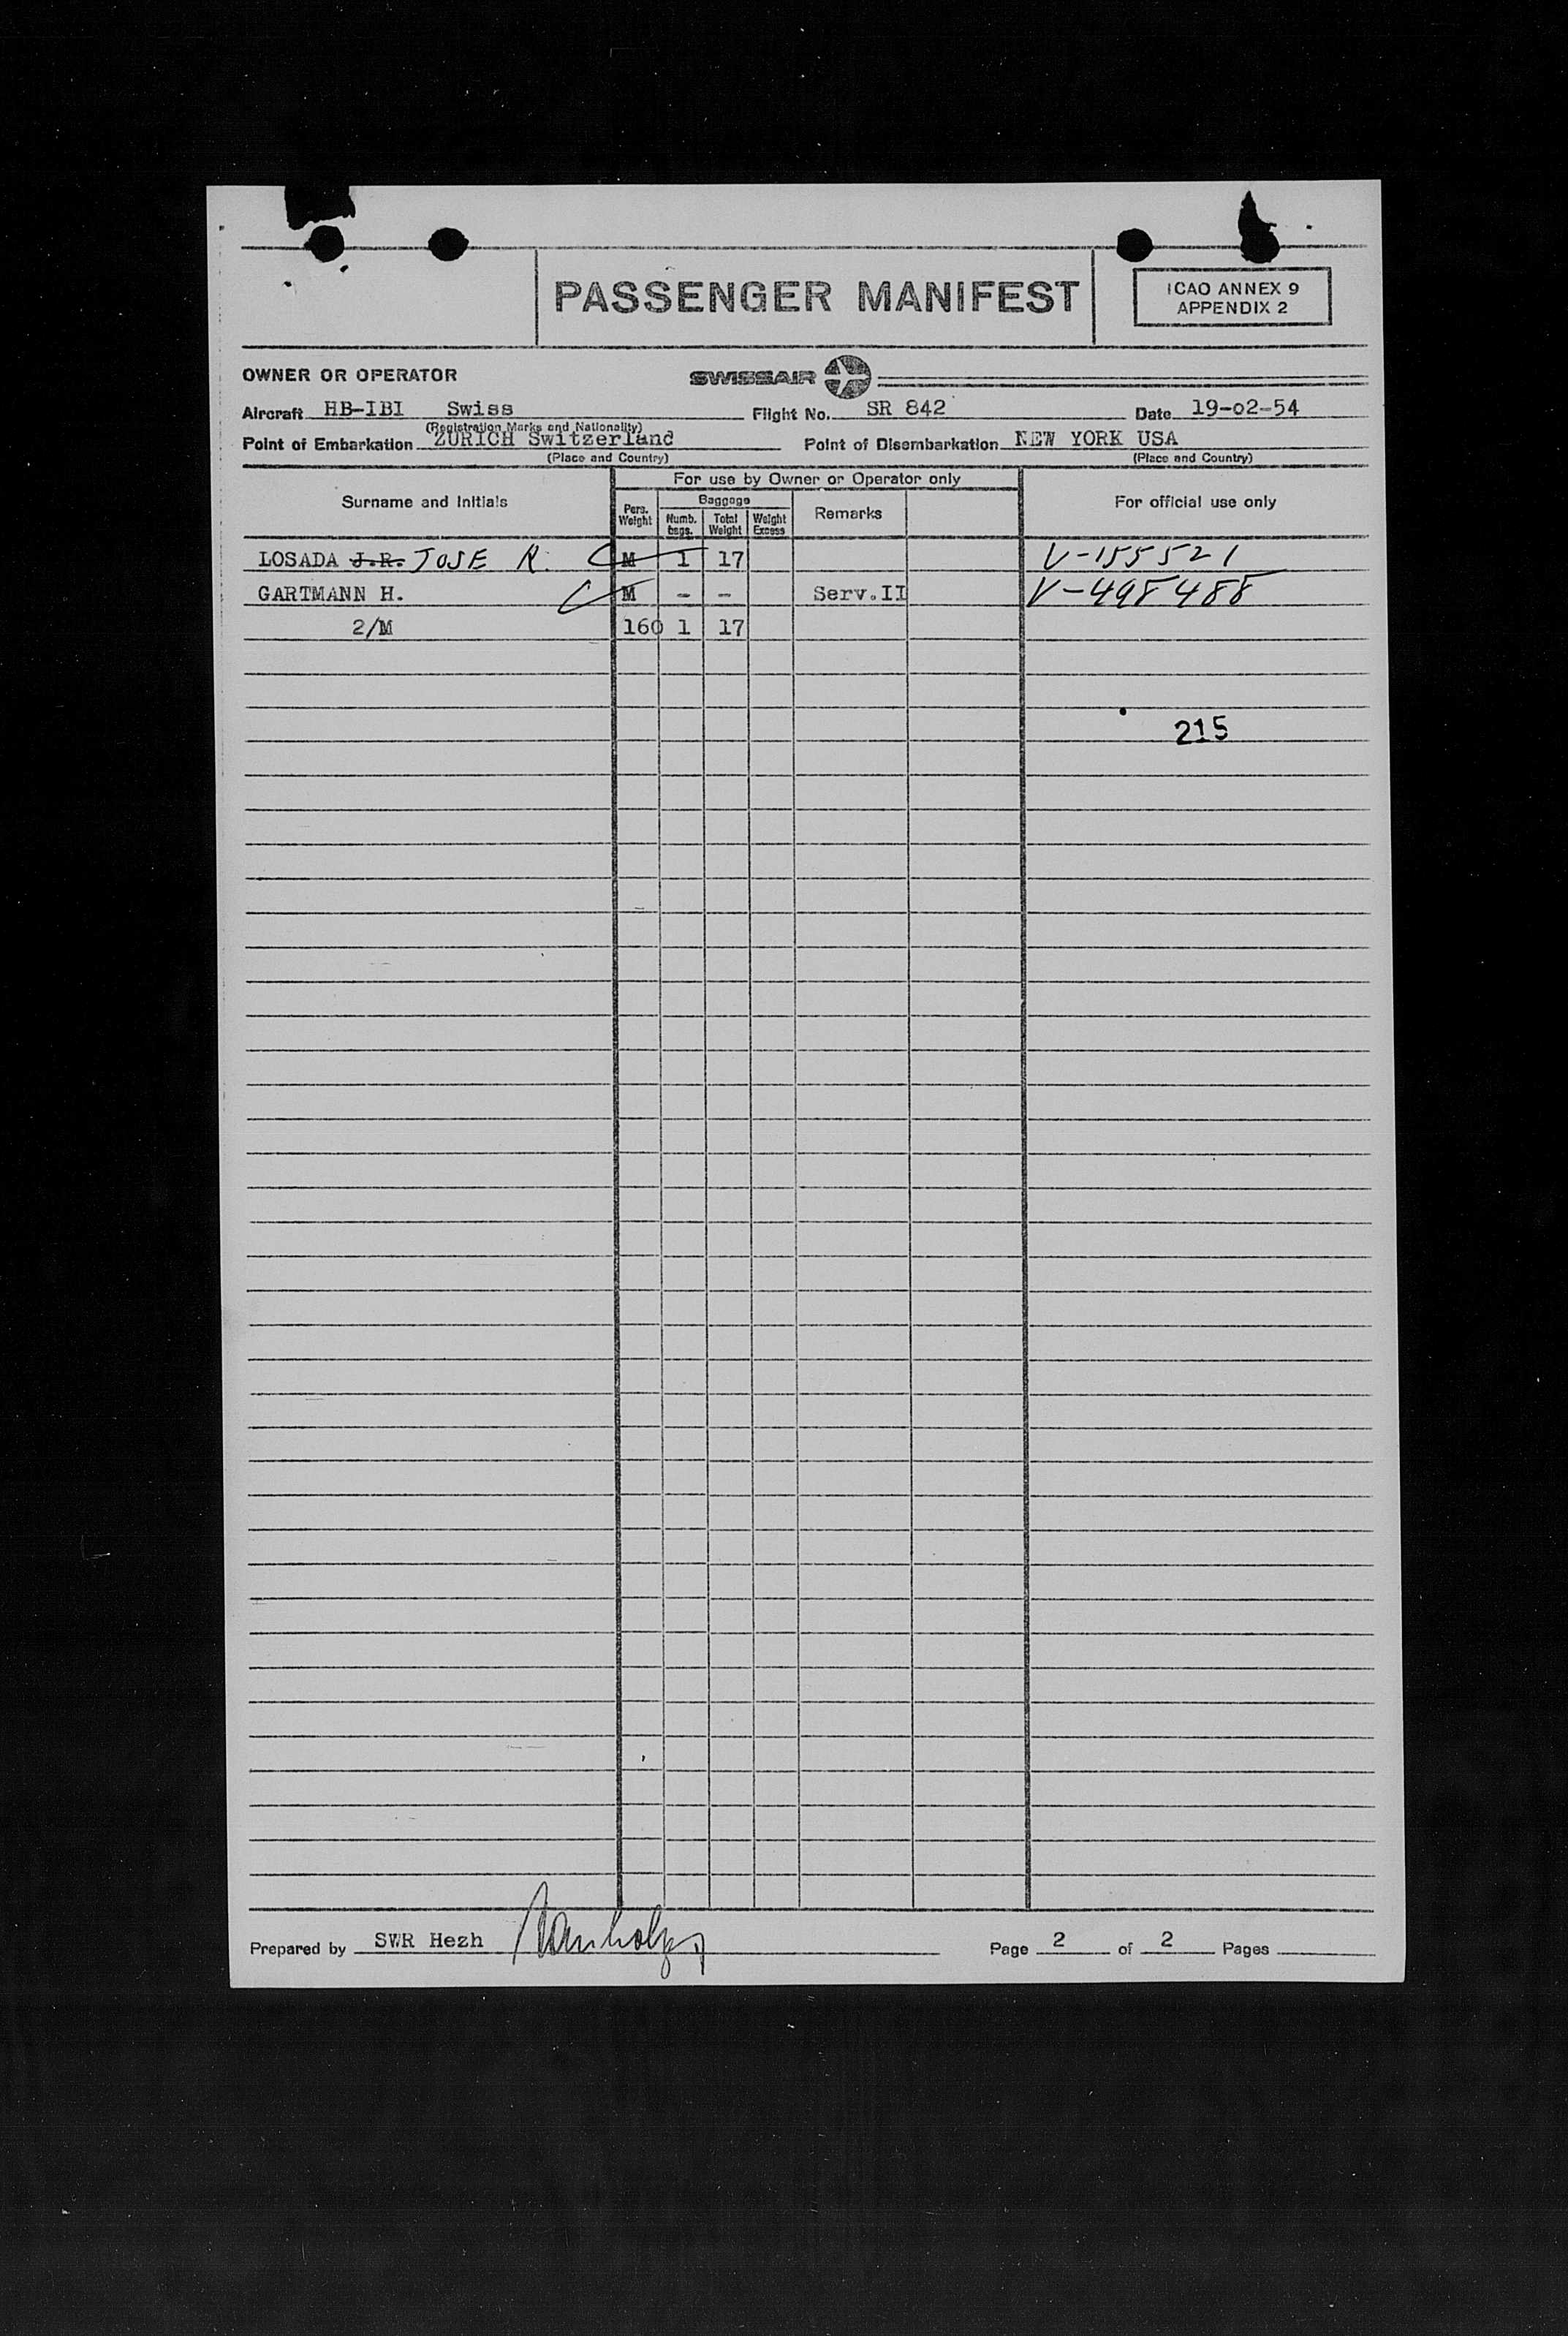 PASSENGER MANIFEST
ICAO ANNEX 9
APPENDIX 2
OWNER OR OPERATOR SWISSAIR
Aircraft HB-IBI Swiss Flight No. SR 842 Date 19-02-54
(Registration Marks and Nationality)
Point of Embarkation ZURICH Switzerland Point of Disembarkation NEW YORK USA
(Place and Country) (Place and Country)
For use by Owner or Operator only
Surname and Initials Pers. Weight Baggage Numb. bags. Total Weight Weight Excess Remarks For official use only
LOSADA J.R. JOSE R. M 1 17 V-155521
GARTMANN H. M - - Serv.II V-498488
2/M 160 1 17
215
Prepared by SWR Hezh Page 2 of 2 Pages